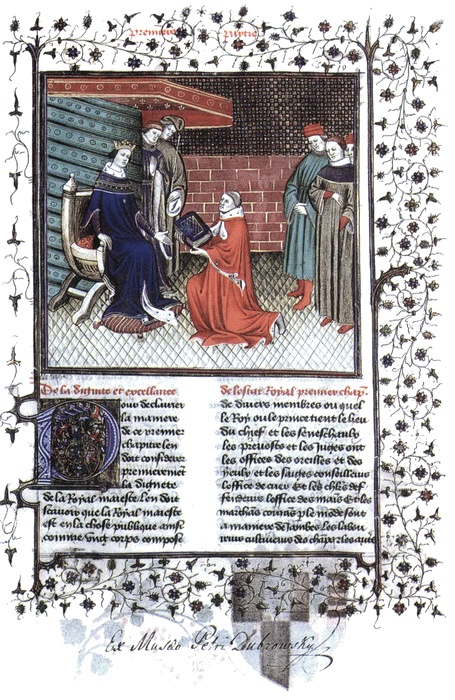 premiere partie
De la dignite et excellance
de lestat Royal premier chap.
Pour declairer
la maniere
de ce premier
chapitre len
doit considerer
premieremet
la dignete
de la Royal maieste len doit
scavoir que la Royal maieste
est en la chose publique ainsi
comme Ung corps compose
de divers membres ou quel
le Roy ou le prince tient le lieu
du chief et les seneschaulx
les prevosts et les Juges ont
les offices des oreilles et des
yeulx et les saiges conseilliers
loffice de cuer Et les chlrs def
fenseurs loffice des mais Et les
marchans courans p le mode sont
a maniere de Jambes les labou
Ex Musæo Petri Dubrowsky